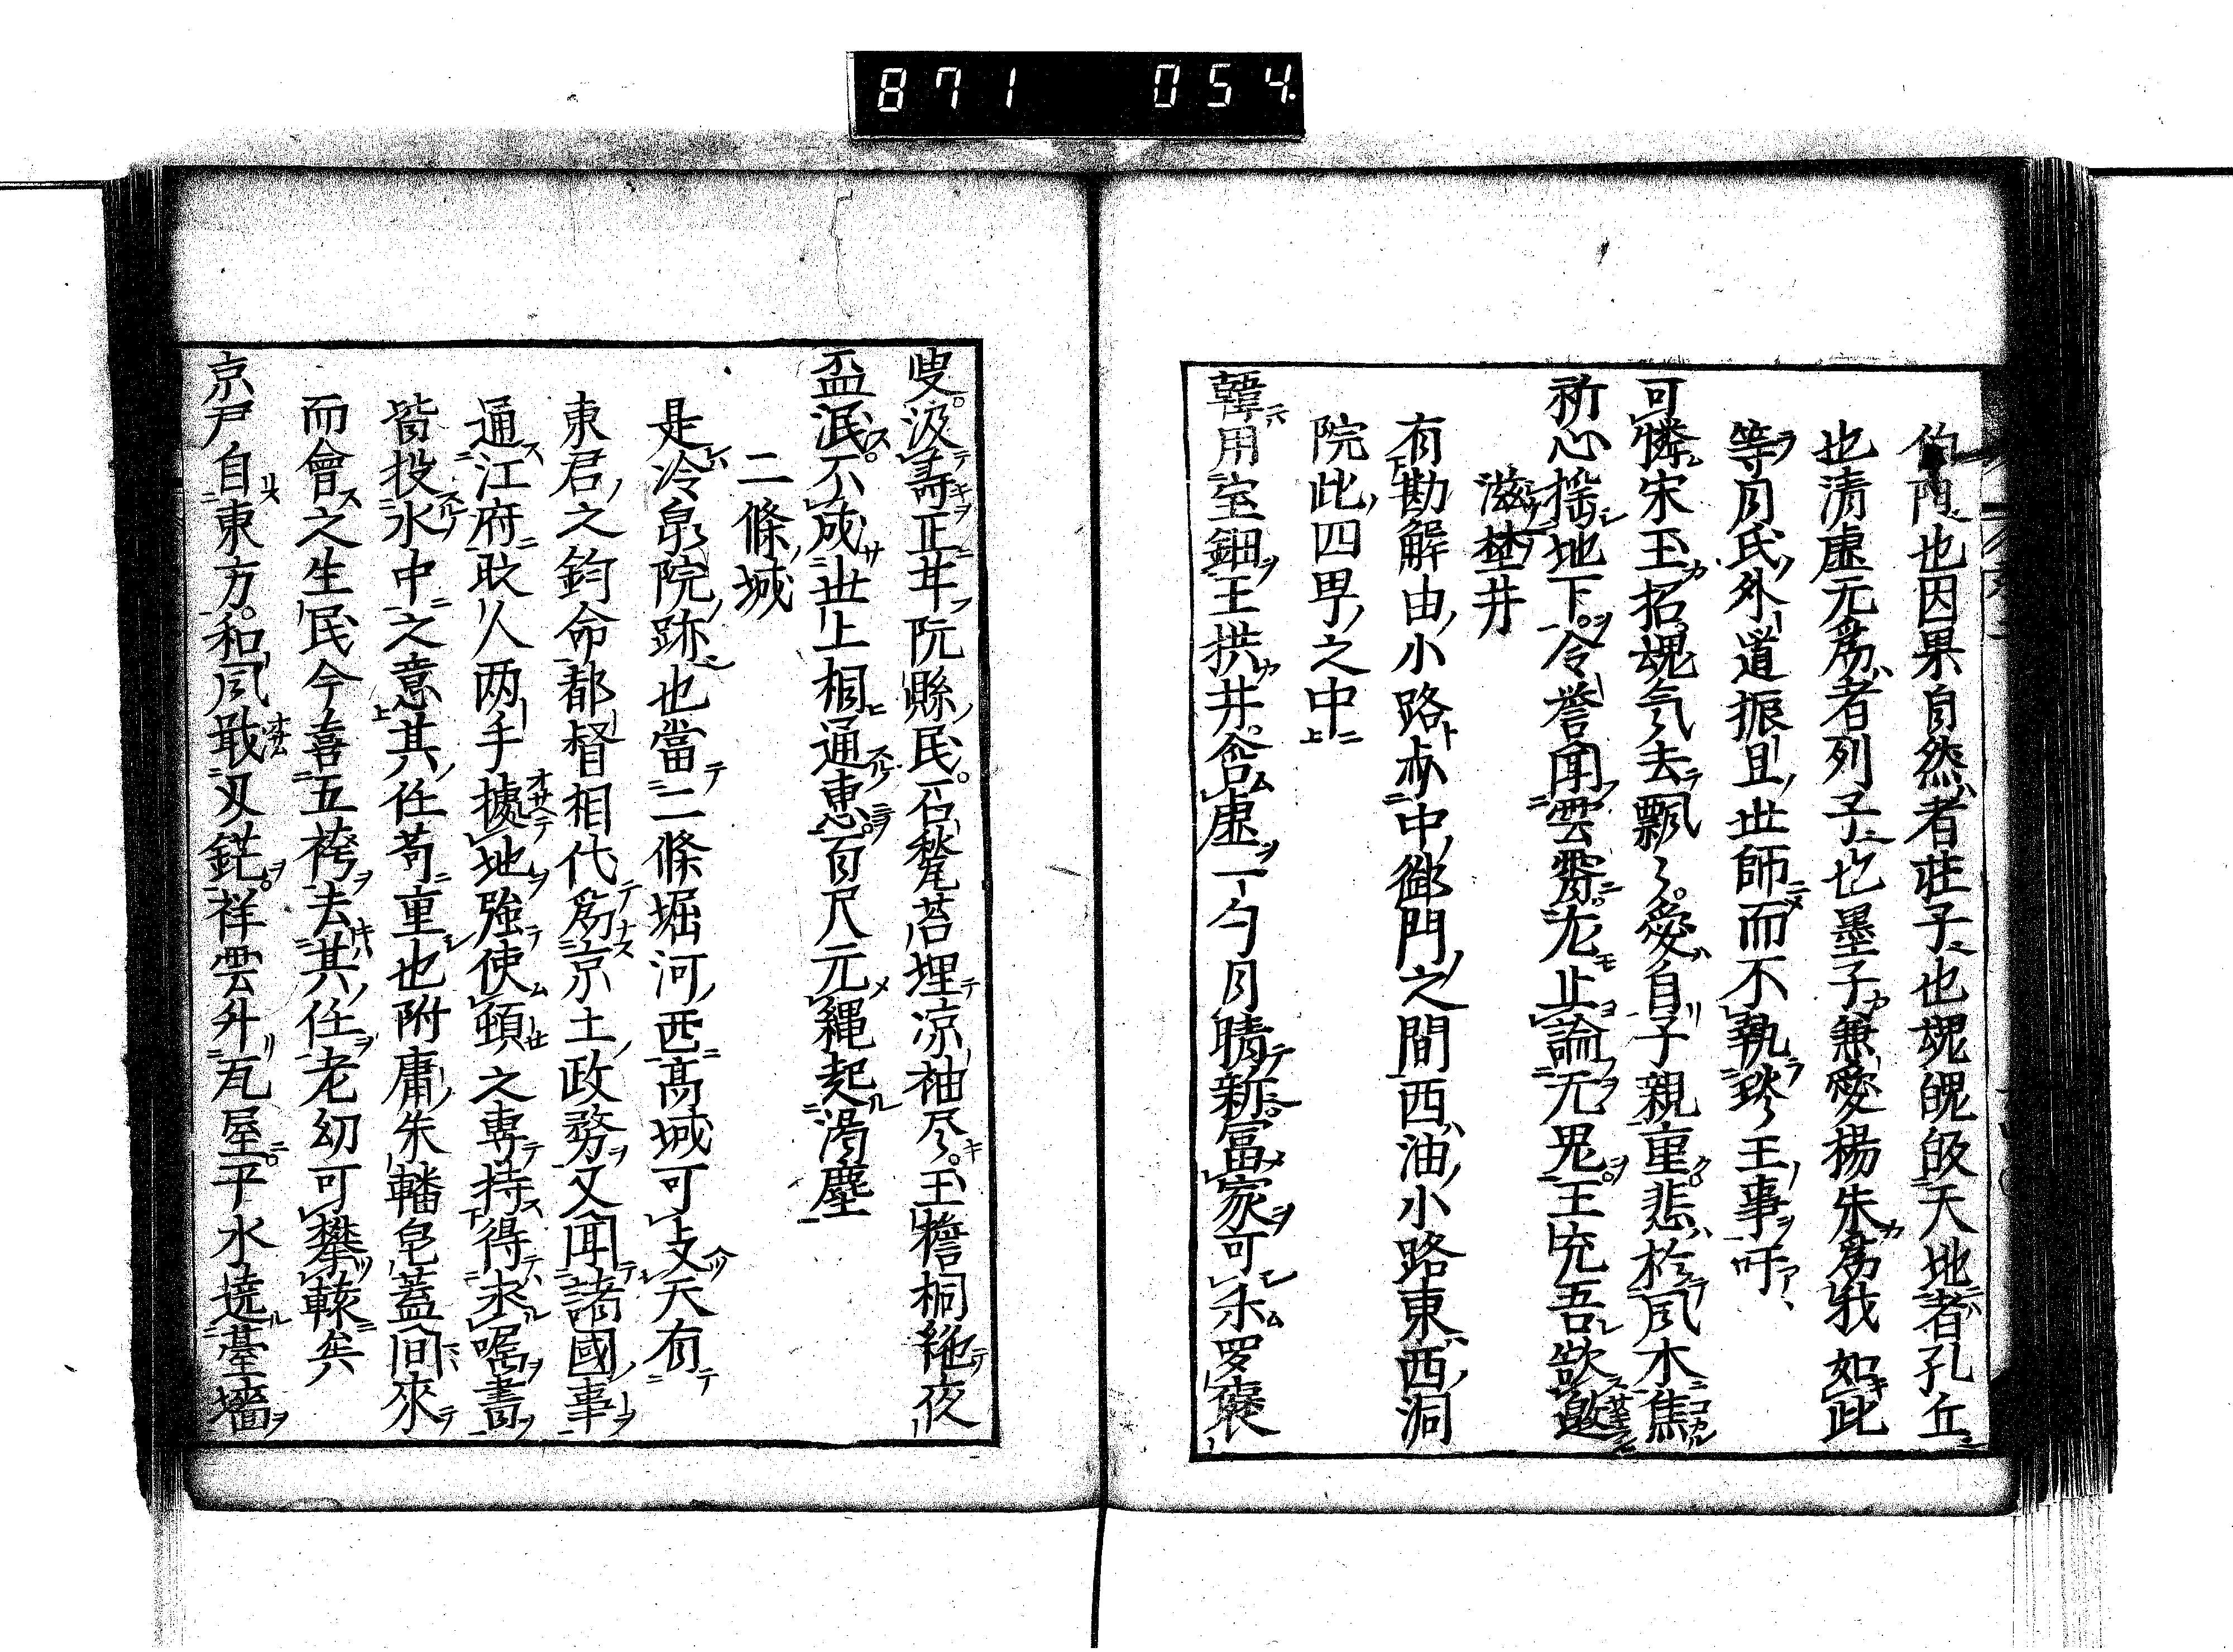 871 054
也因果自然者荘子也魂魄皈天地者孔丘
也清虚无為者列子也墨子兼愛揚朱為我如此
等月氏外道振旦世師而不執琰王事吁
可憐宋玉招魂気去飄〻愛自子親重悲於風木焦
祈心揺地下令誉聞雲霽尤止論无鬼王充吾欲邀
滋埜井
有勘解由小路亦中御門之間西油小路東西洞
院此四男之中
韓用宝鈿王拱井含虚一勺月晴新冨家可汆罗襃
叟汲壽正丼阮縣民石甃苔埋凉袖尽玉簷桐絶夜
盃泯不成世上相通恵百尺元縄起渇塵
二條城
是冷泉院跡也當二條堀河西高城可上文天有
東君之鈞命都督相代為京土政務又聞諸國事
通江府耿人两手據地強使頓之専持得求嘱書
皆投水中之意其任苟重也附庸朱轓皂蓋间來
而會之生民今喜五袴去其任老幻可攀轅矣
京尹自東方和風戢刄鋩祥雲升瓦屋平水遶臺墻